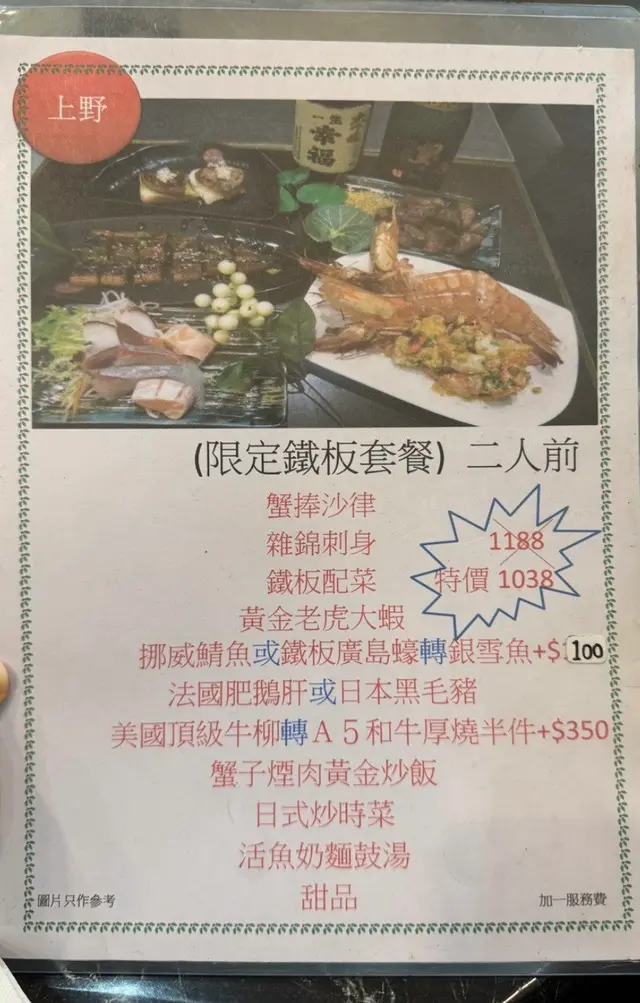 上野
一生
幸福
(限定鐵板套餐) 二人前
蟹捧沙律
雜錦刺身
1188
鐵板配菜
特價 1038
黃金老虎大蝦
挪威鯖魚或鐵板廣島蠔轉銀雪魚+$100
法國肥鵝肝或日本黑毛豬
美國頂級牛柳轉A5和牛厚燒半件+$350
蟹子煙肉黃金炒飯
日式炒時菜
活魚奶麵鼓湯
甜品
圖片只作參考
加一服務費